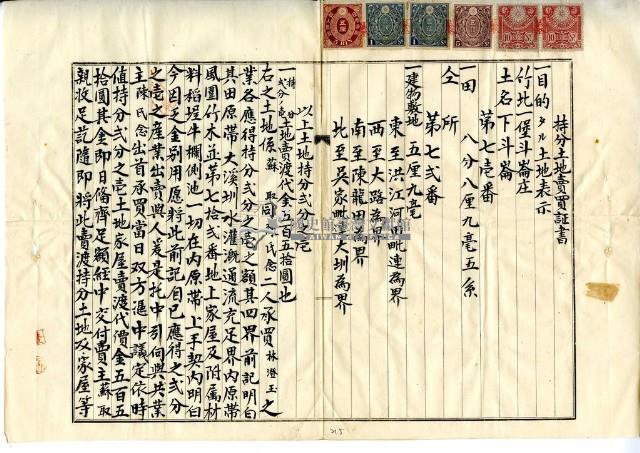 持分土地賣買証書
一目的タル土地表示
竹北一堡斗崙庄
土名下斗崙
第七壱番
一田 八分八厘九毫五糸
仝所
第七弍番
一建物敷地 五厘九毫
東至洪江河田毗連為界
西至大路為界
南至陳龍田為界
北至吳家毗大圳為界
以上土地持分弍分之壱
持分弍分ノ壱土地賣渡代金五百五拾圓也
右之土地係蘇取同 氏念二人承買林澄玉之
業各應得持分弍分之壱之額其四界前記明白
其田原帶大溪圳水灌溉通流充足界內原帶
風圍竹木並第七拾弍番地上家屋及附属材
料稻埕牛欄側池一切在內原帶上手契內明白
今因乏金別用愿將此前記自已應得之弍分
之壱之產業出賣與人爰是托中引向與共業
主陳氏念出首承買當日双方憑中議定依時
值持分弍分之壱土地家屋賣渡代價金五百五
拾圓其金即日俻齊足額經中交付賣主蘇取
親收足訖隨即將此賣渡持分土地及家屋等